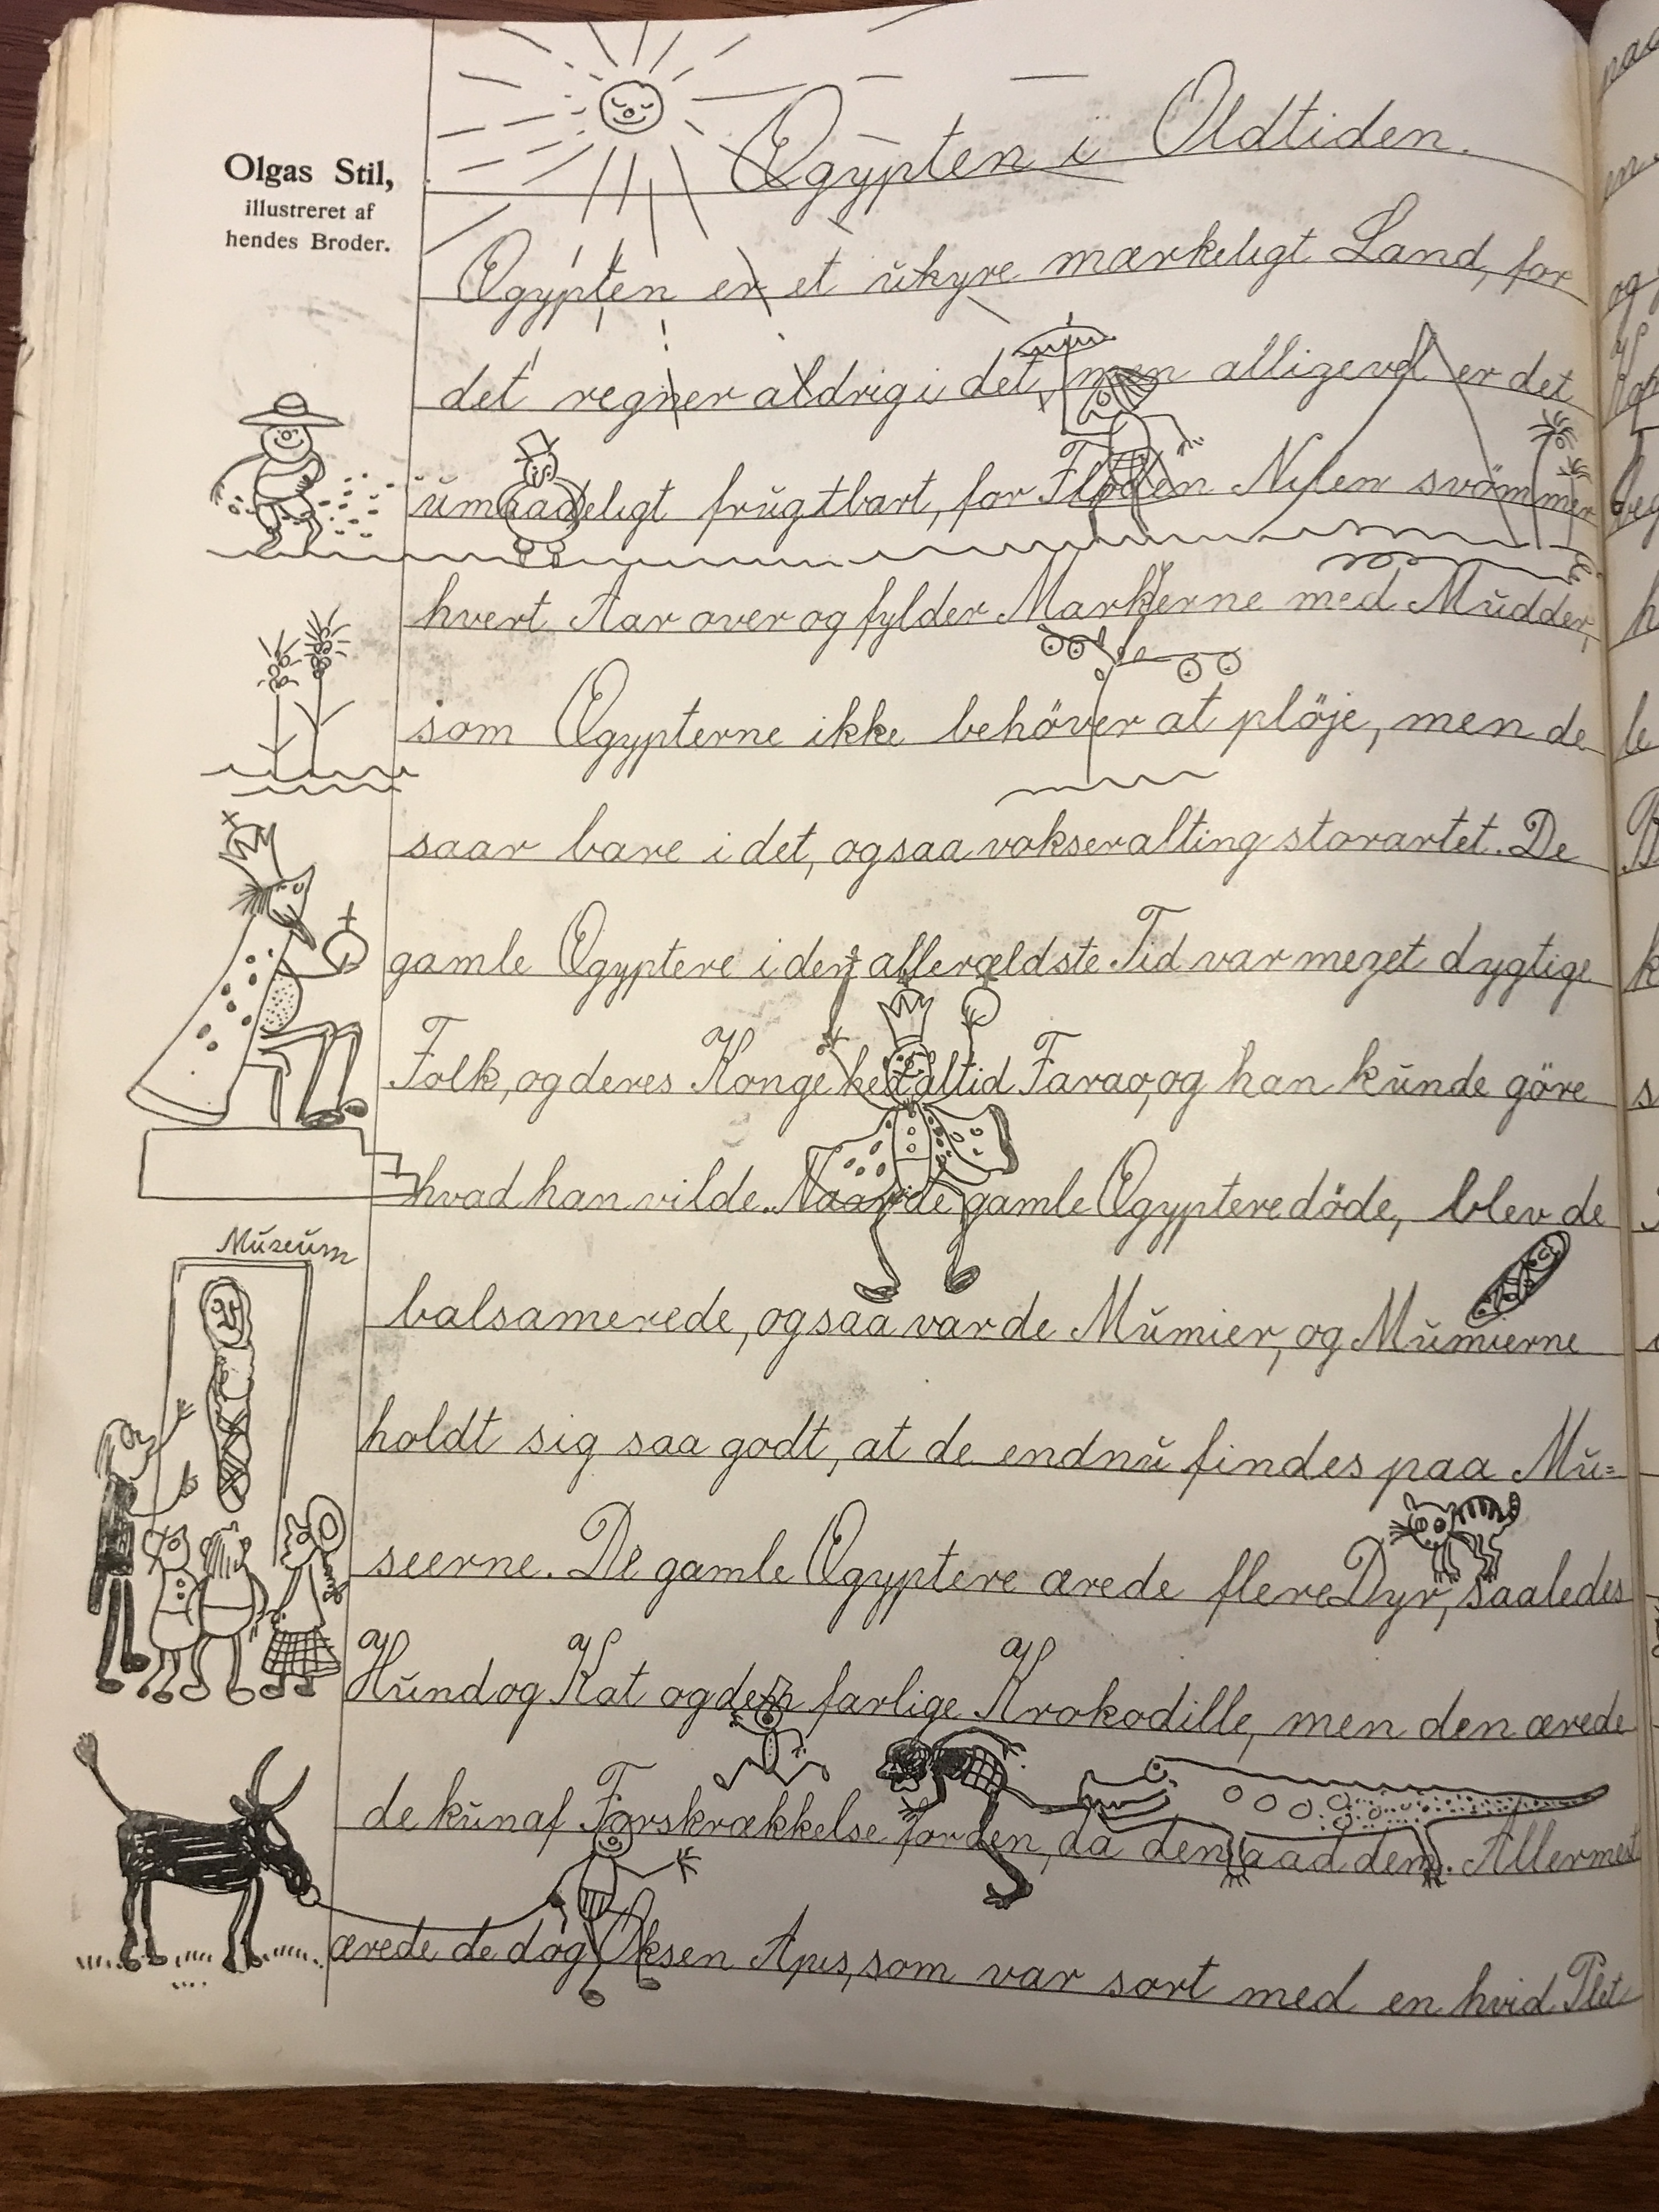 Olgas Stil,
illustreret af
hendes Broder.
Ægypten i Oldtiden.
Ægypten er et uhyre mærkeligt Land, for
det regner aldrig i det, men alligevel er det
umaadeligt frugtbart, for Floden Nilen svömmer
hvert Aar over og fylder Markerne med Mudder,
som Ægypterne ikke behöver at plöje, men de
saar bare i det, ogsaa vokser alting storartet. De
gamle Ægyptere i den allerældste Tid var meget dygtige
Folk, og deres Konge hed altid Farao, og han kunde göre
hvad han vilde. Naar de gamle Ægyptere döde, blev de
Museum
balsamerede, ogsaa var de Mumier, og Mumierne
holdt sig saa godt, at de endnu findes paa Mu=
seerne. De gamle Ægyptere ærede flere Dyr, saaledes
Hund og Kat og den farlige Krokodille, men den ærede
de kun af Forskrækkelse for den, da den aad dem. Allermest
ærede de dog Oksen Apis, som var sort med en hvid Plet